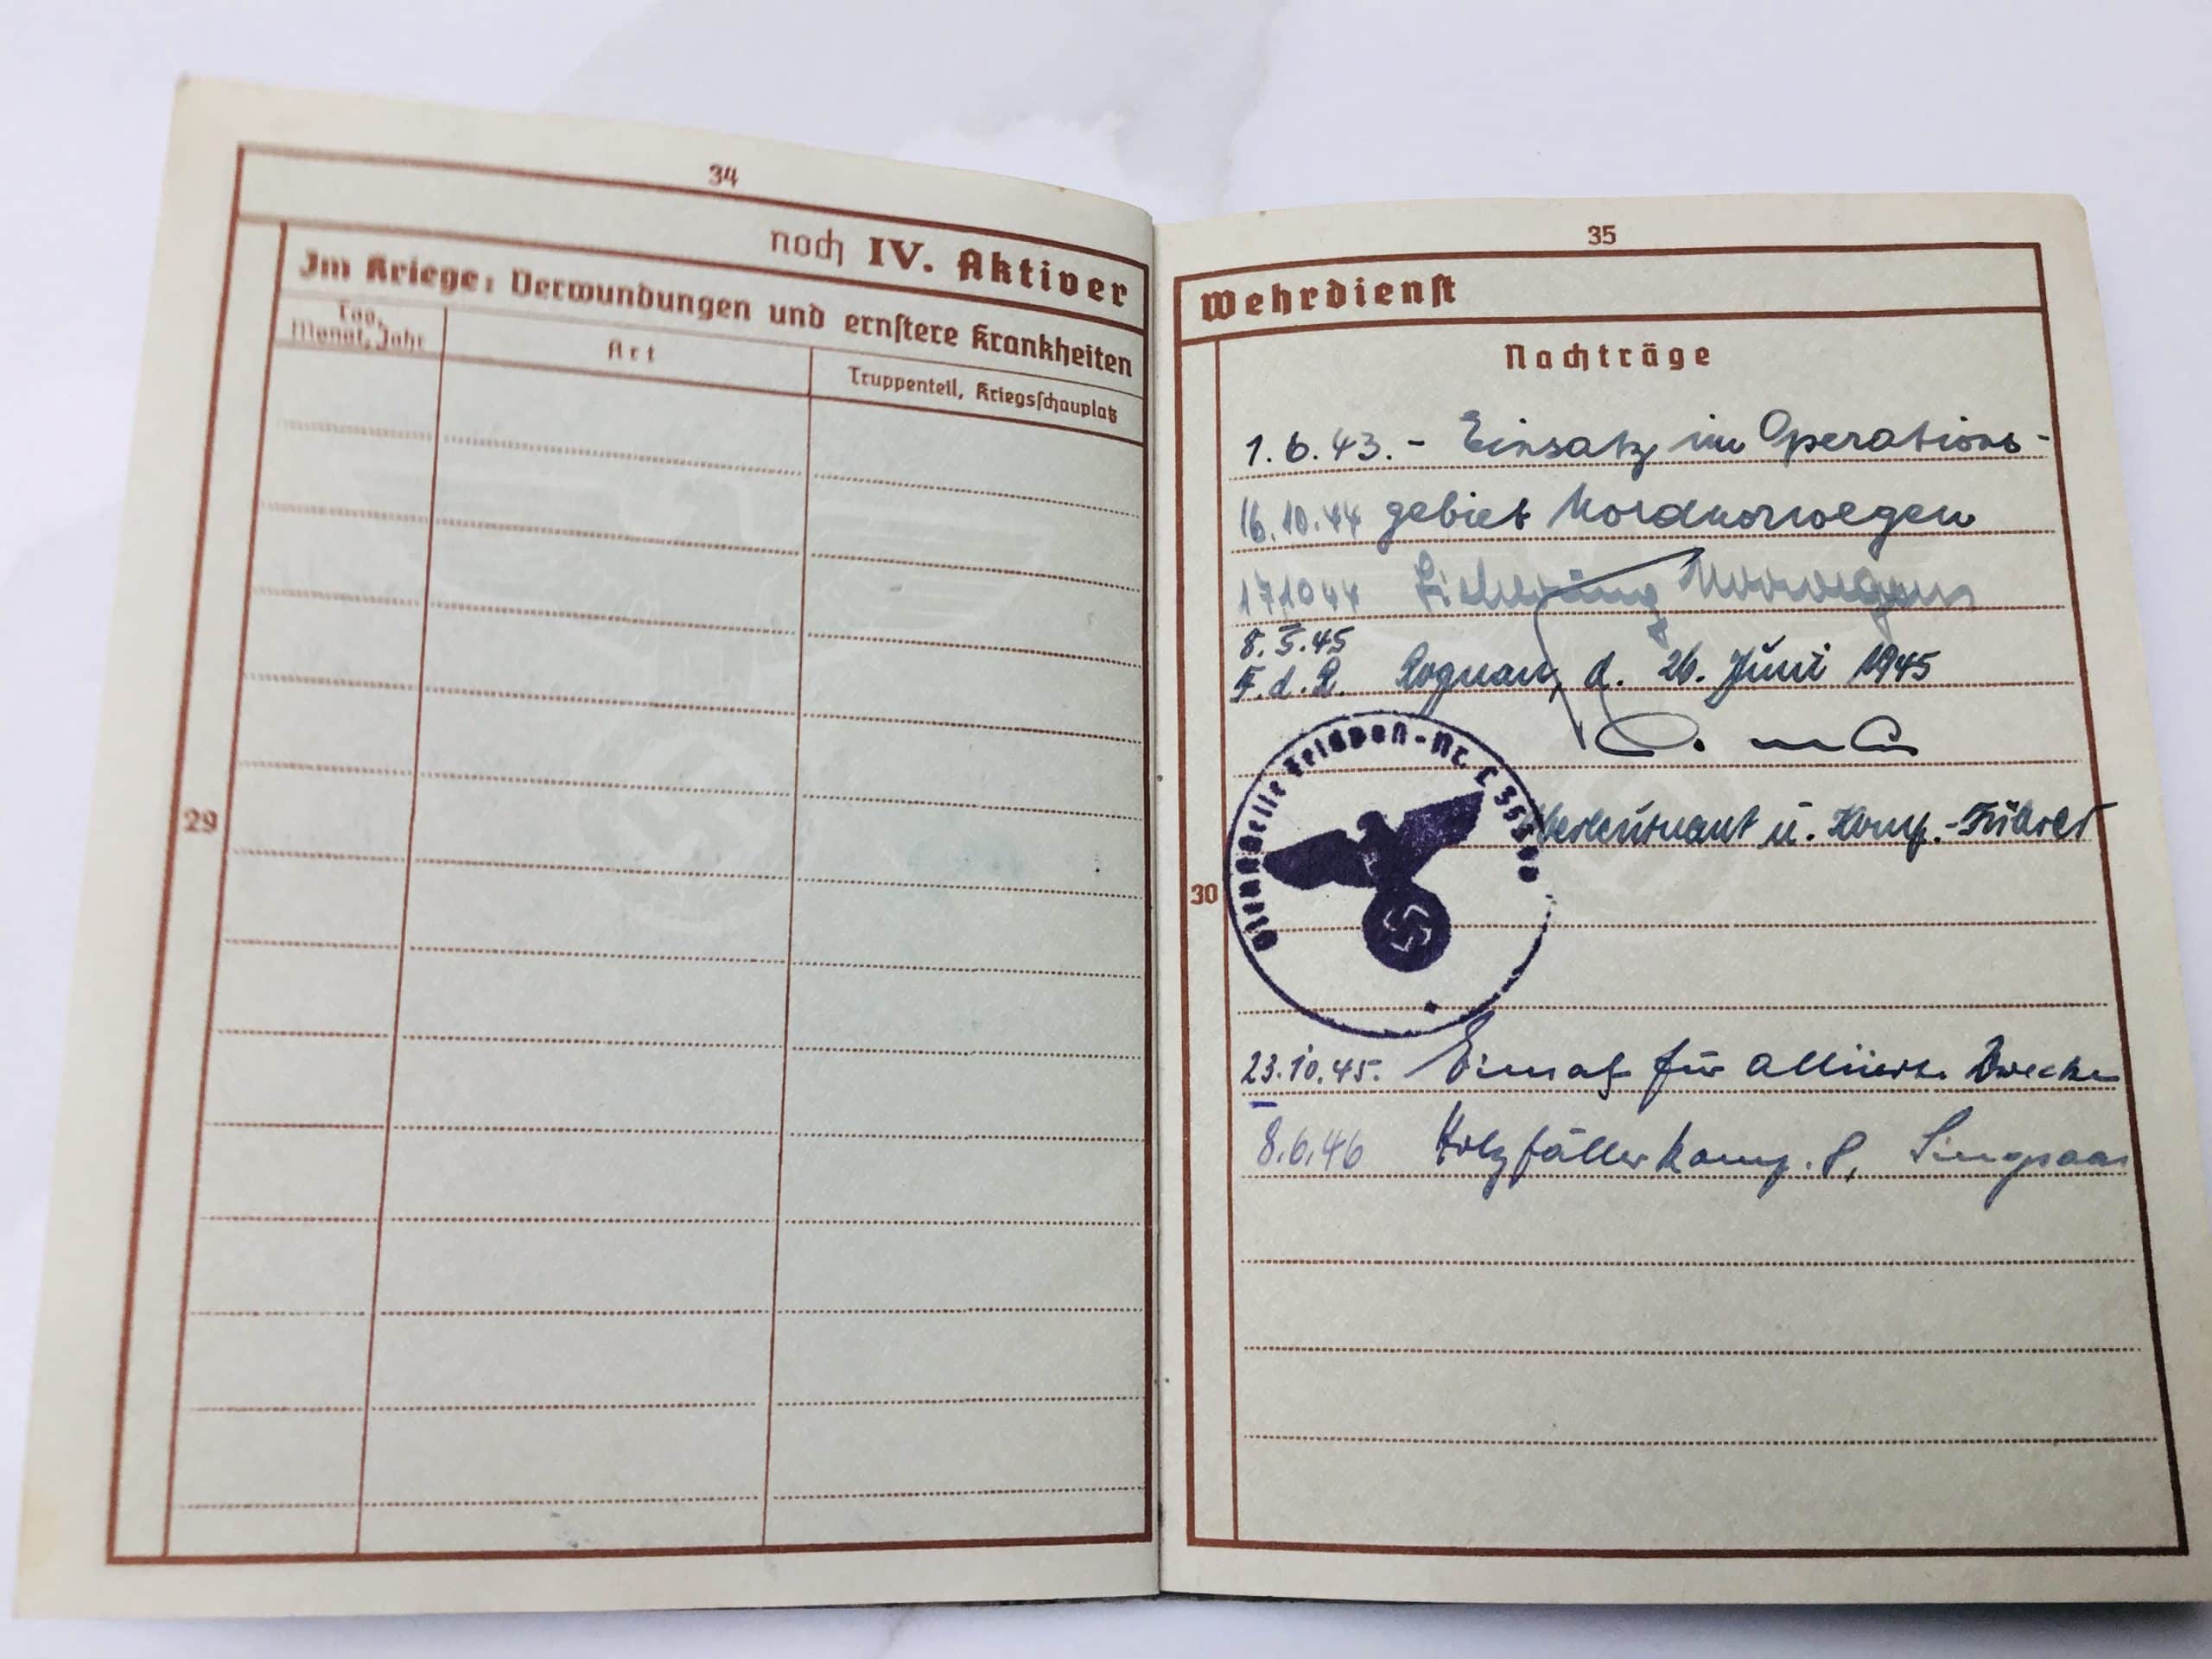 34
noch IV. Aktiver
Im Kriege: Verwundungen und ernstere Krankheiten
Tag, Monat, Jahr
Art
Truppenteil, Kriegsschauplatz
29
35
Wehrdienst
Nachträge
1.6.43. - Einsatz im Operations-
16.10.44 gebiet Nordnorwegen
17.10.44 Sicherung Norwegens
8.5.45
F.d.R. Rognan, d. 26. Juni 1945
Dienststelle Feldpost-Nr.
Oberleutnant u. Komp.-Führer
30
23.10.45. Einsatz für alliierte Zwecke
–
8.6.46 Holzfällerkomp. 8, Singsaas